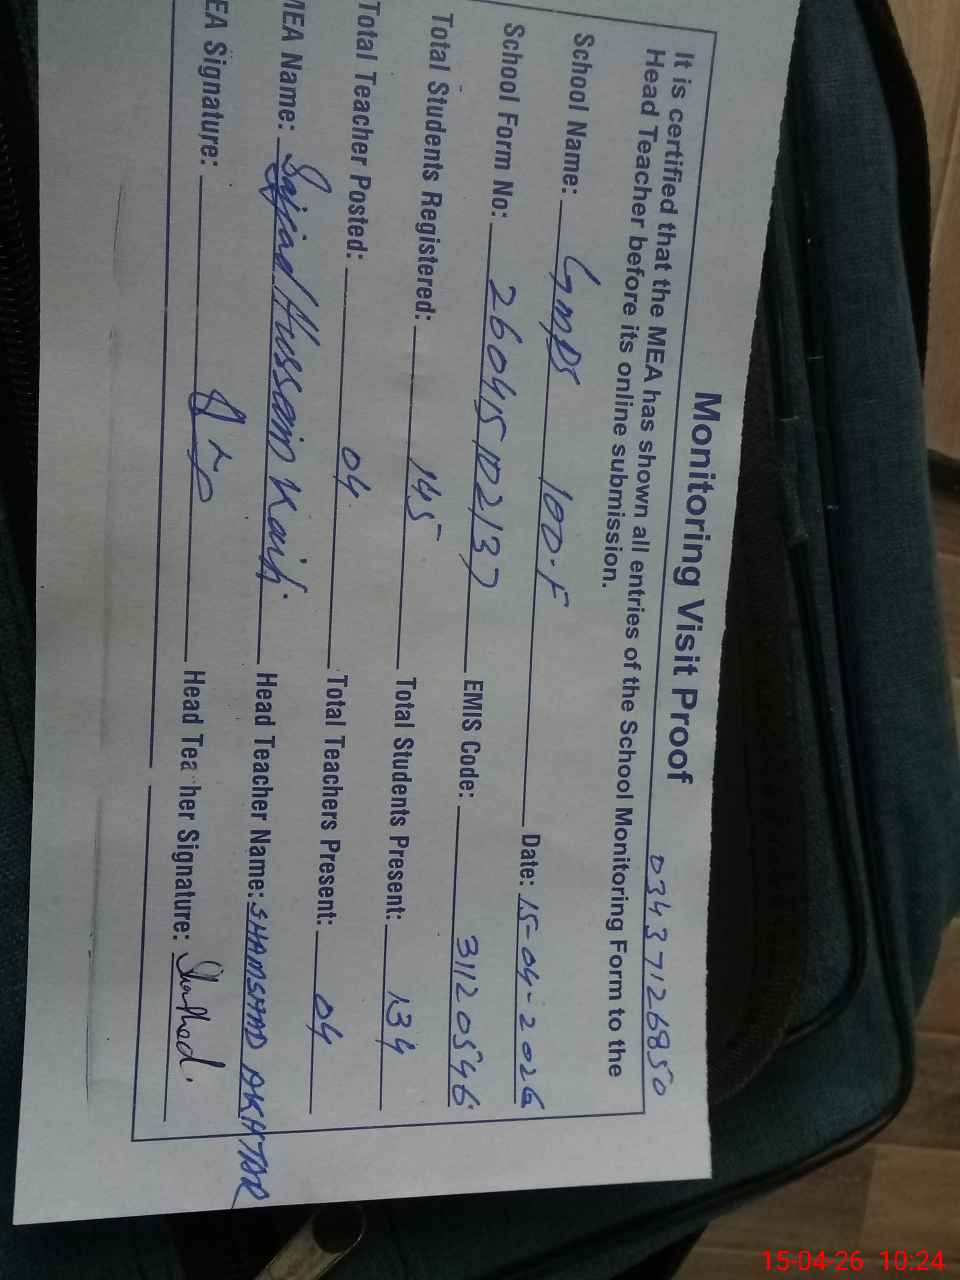 Monitoring Visit Proof
03437126850
It is certified that the MEA has shown all entries of the School Monitoring Form to the
Head Teacher before its online submission.
School Name: GMPS 100.F Date: 15-04-2026
School Form No: 26041510213 EMIS Code: 31120546
Total Students Registered: 145 Total Students Present: 134
Total Teacher Posted: 04 Total Teachers Present: 04
MEA Name: Sajjad Hussain Head Teacher Name: SHAMSHAD AKHTAR
EA Signature: Head Tea her Signature:
15-04-26 10:24